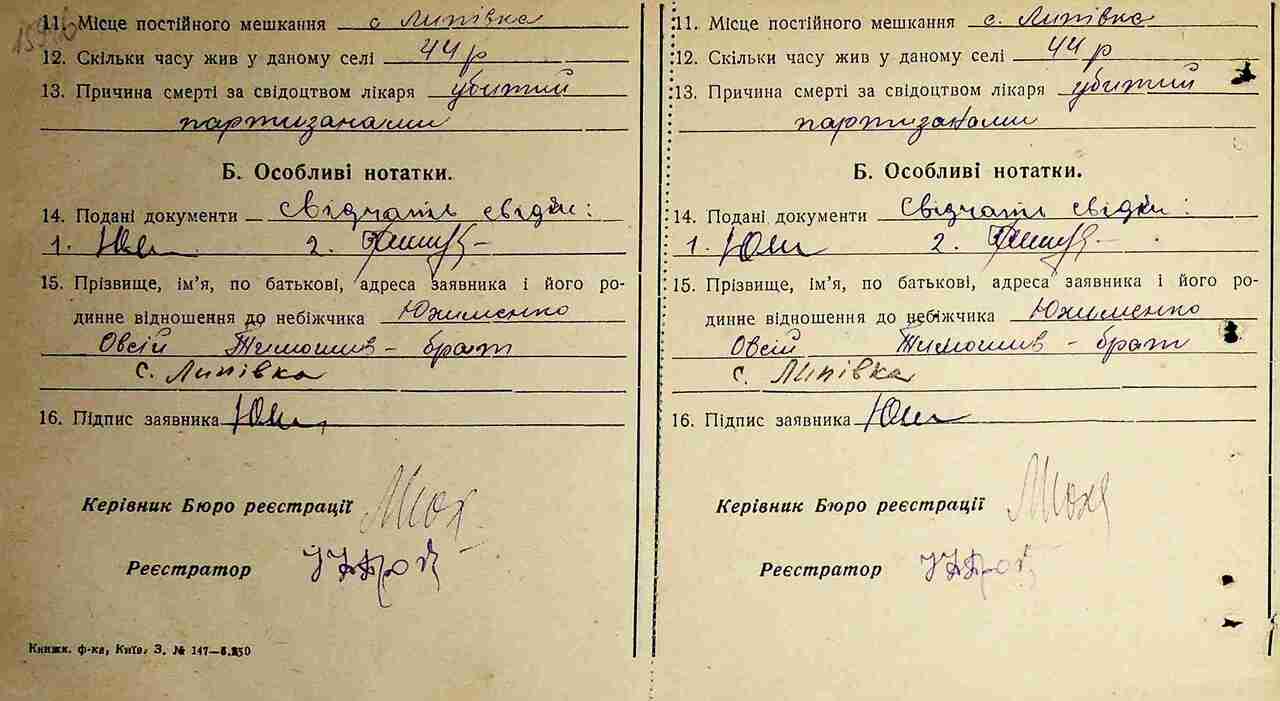 11. Місце постійного мешкання с. Липівка
12. Скільки часу жив у даному селі 44 р
13. Причина смерті за свідоцтвом лікаря убитий
партизанами
Б. Особливі нотатки.
14. Подані документи Свідчать свідки:
1. Юхи 2.
15. Прізвище, ім’я, по батькові, адреса заявника і його ро-
динне відношення до небіжчика Юхименко
Овсій Тимошив - брат
с. Липівка
16. Підпис заявника Юхи
Керівник Бюро реєстрації
Реєстратор
Книжк. ф-ка, Київ, З. № 147—6.250
11. Місце постійного мешкання с. Липівка
12. Скільки часу жив у даному селі 44 р
13. Причина смерті за свідоцтвом лікаря убитий
партизанами
Б. Особливі нотатки.
14. Подані документи Свідчать свідки:
1. Юхи 2.
15. Прізвище, ім’я, по батькові, адреса заявника і його ро-
динне відношення до небіжчика Юхименко
Овсій Тимошив - брат
с. Липівка
16. Підпис заявника Юхи
Керівник Бюро реєстрації
Реєстратор